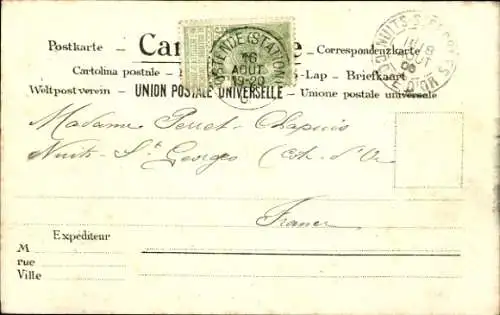 Postkarte — Ca — Correspondenzkarte
Cartolina postale — s-Lap — Briefkaart
Weltpostverein — UNION POSTALE UNIVERSELLE — Unione postale universale
OSTENDE (STATION)
16
AOUT
19-20
NUITS-S-GEORGES
18
COTE D'OR
Madame Perret-Chapuis
Nuits-St Georges (Côte-d'Or
France
Expéditeur
M
rue
Ville